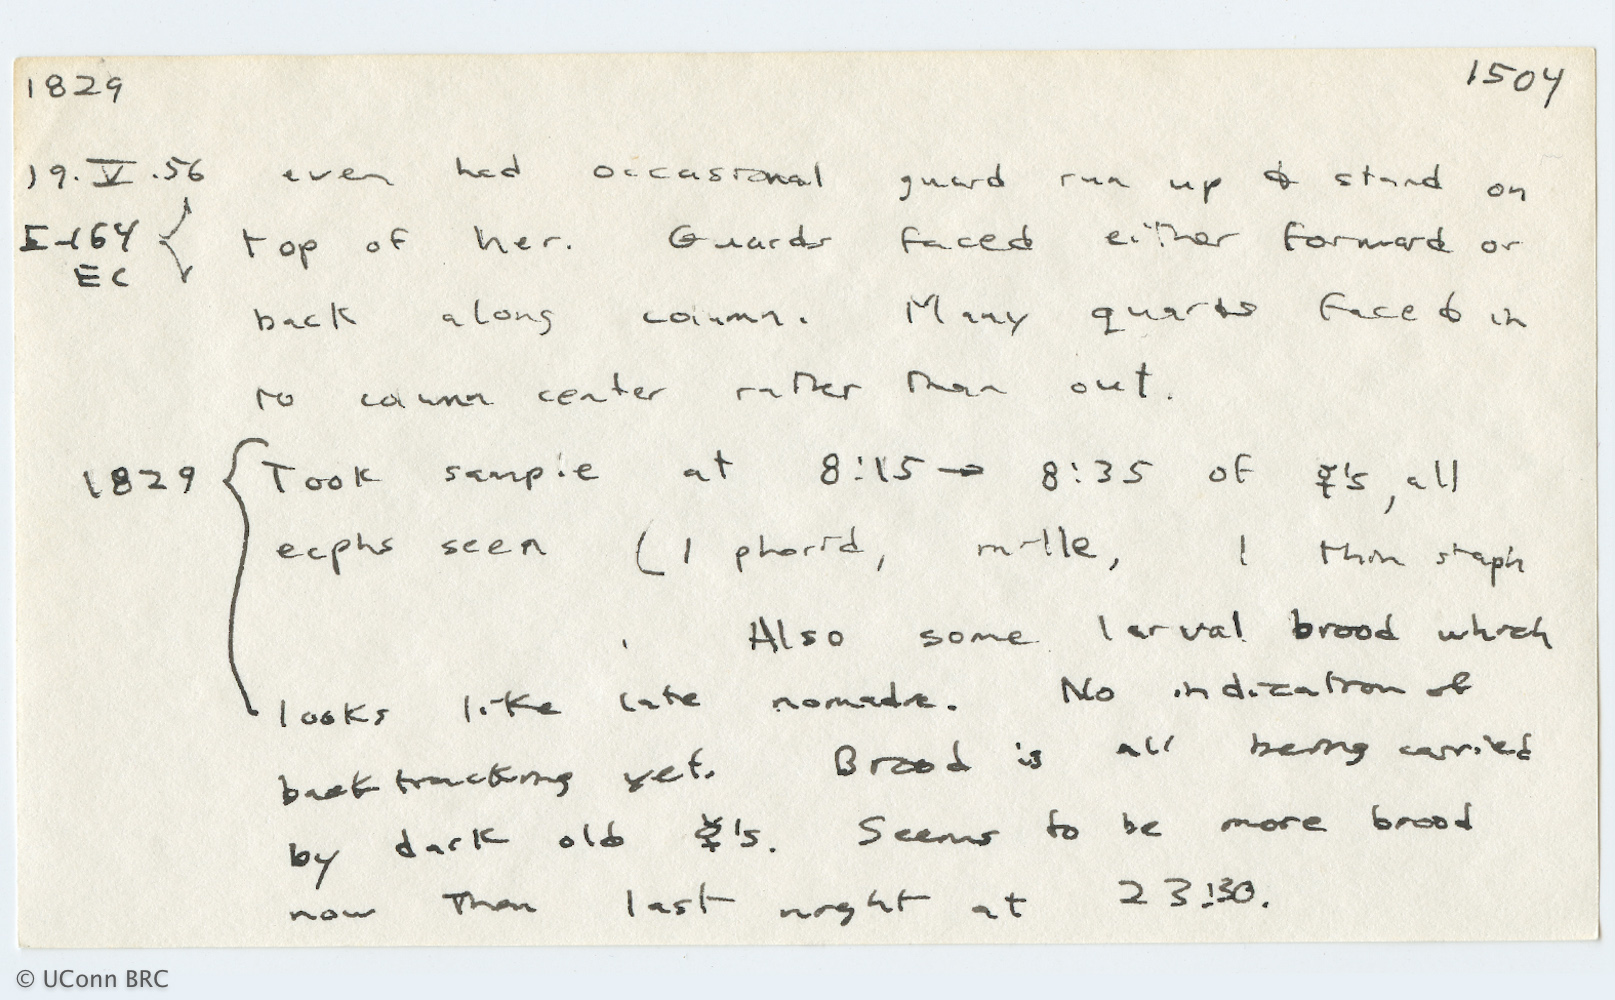 1829 1504
19.V.56 even had occasional guard run up & stand on
E-164 top of her. Guards faced either forward or
EC
back along column. Many guards faced in
to column center rather than out.
1829 Took sample at 8:15→ 8:35 of ☿'s, all
ecphs seen (1 phorid, mille, 1 thin staph
. Also some larval brood which
looks like late nomadic. No indication of
backtracking yet. Brood is all being carried
by dark old ☿'s. Seems to be more brood
now than last night at 23:30.
© UConn BRC